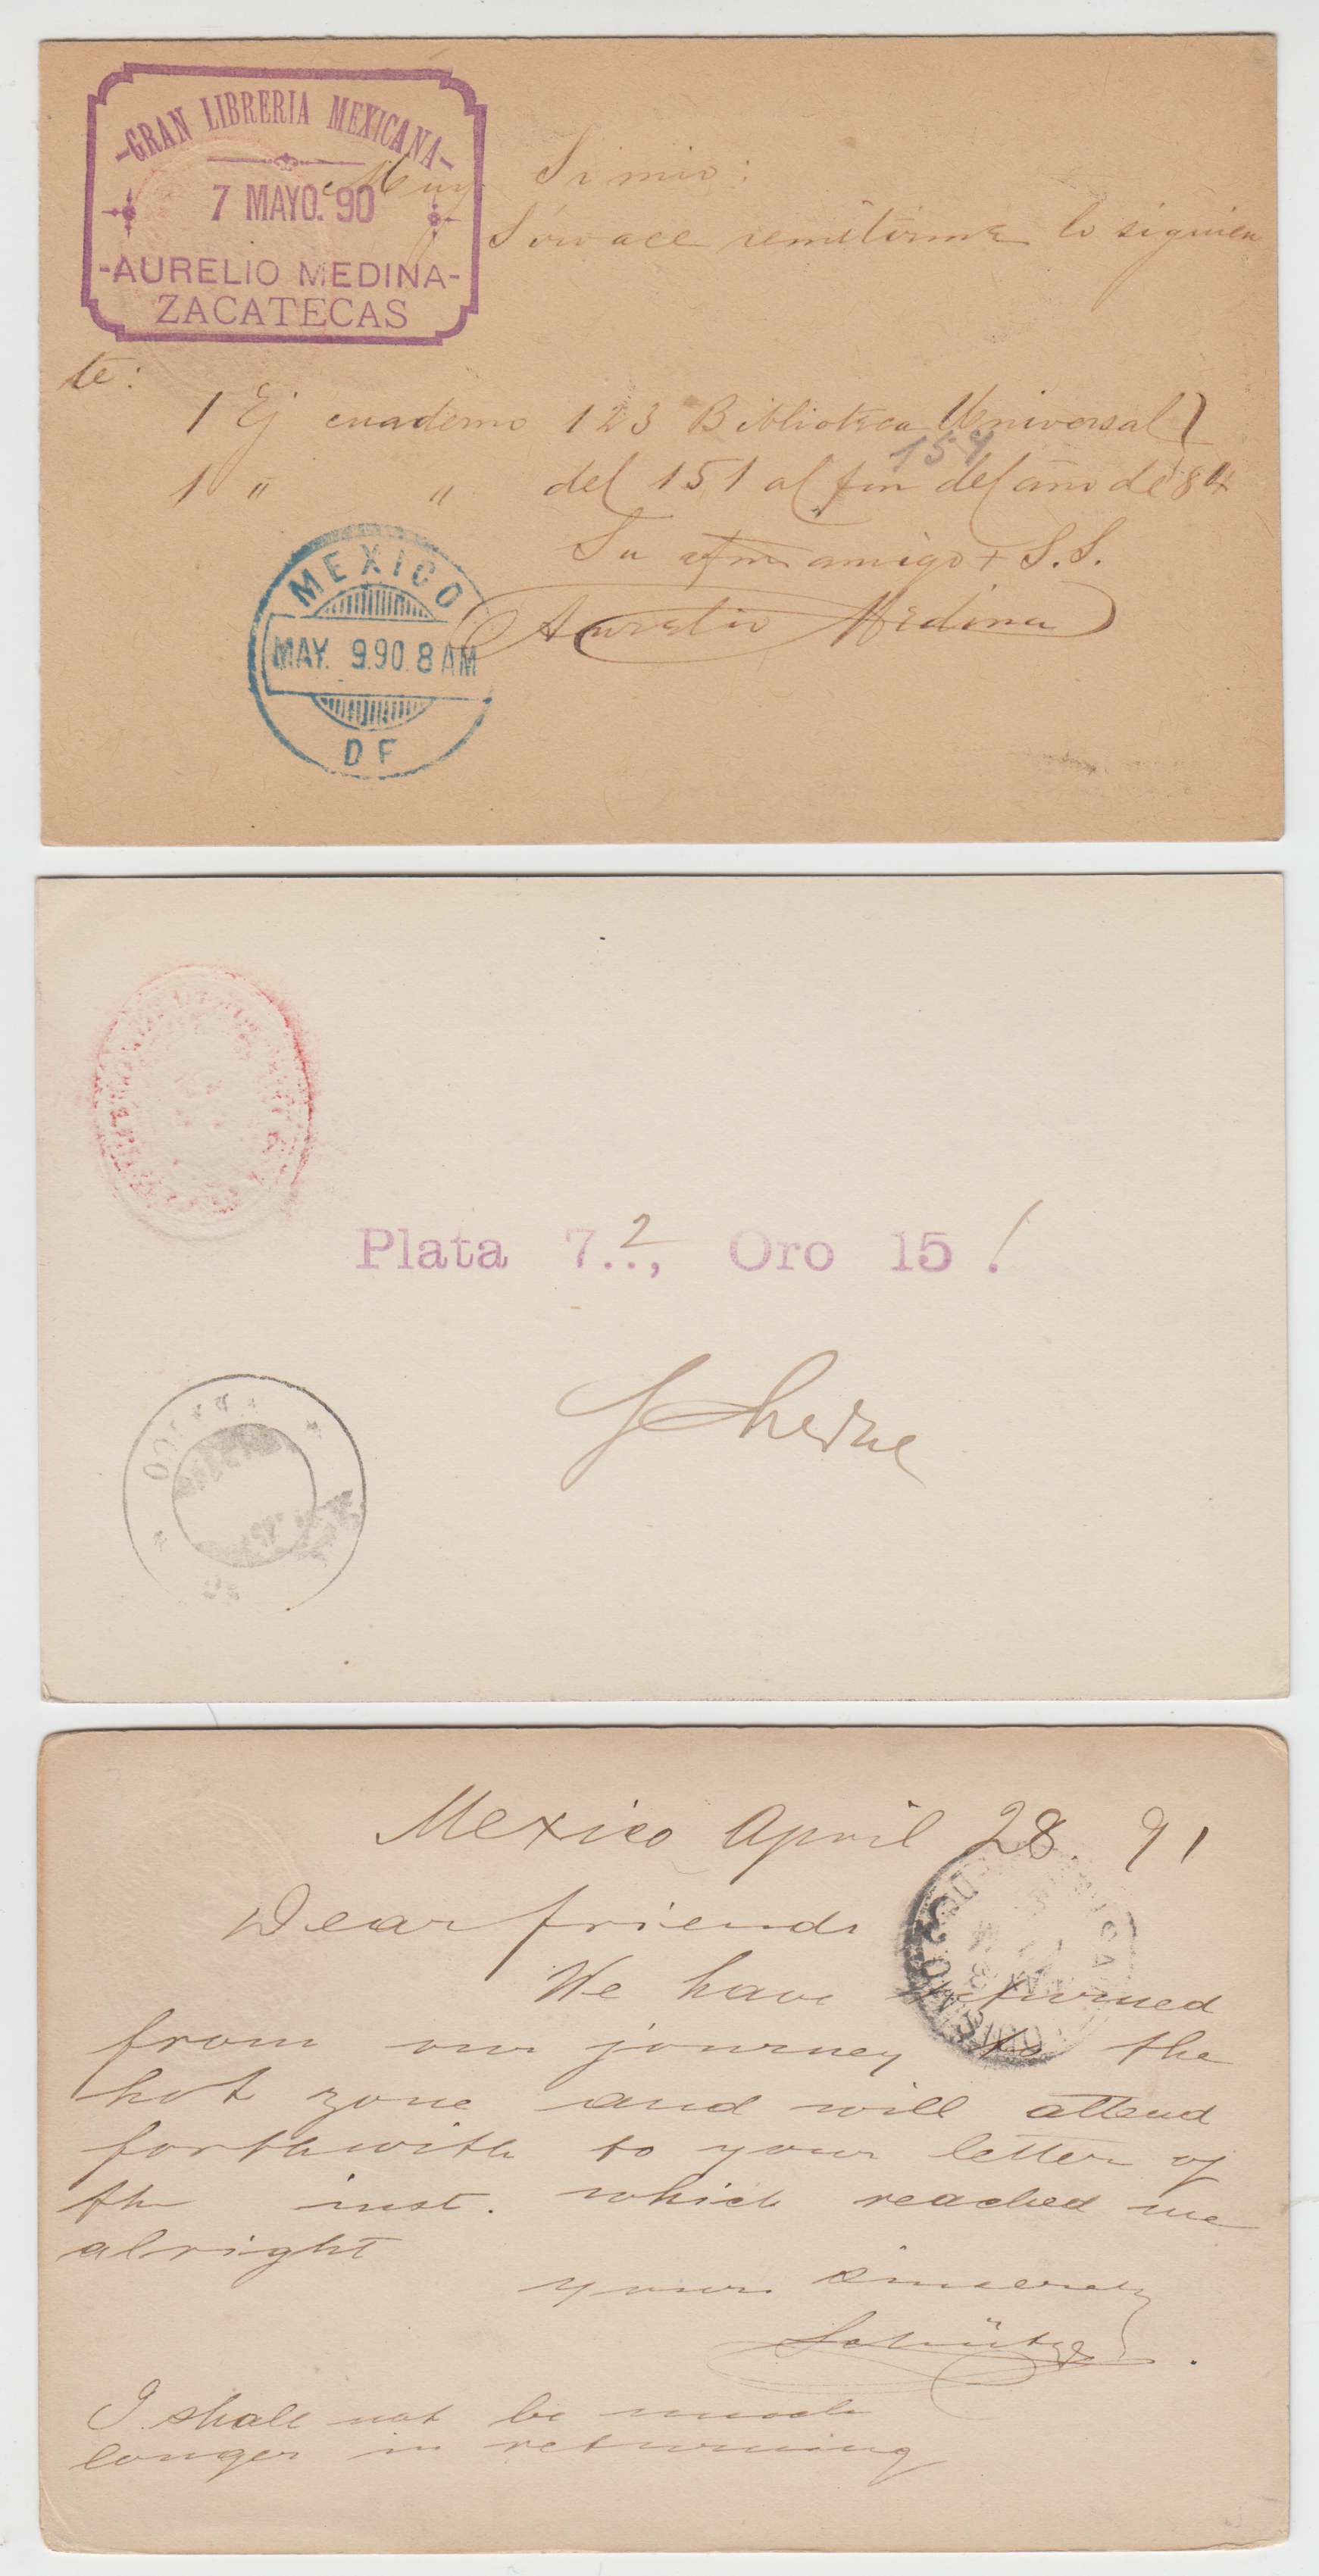 -GRAN LIBRERIA MEXICANA-
7 MAYO. 90
-AURELIO MEDINA-
ZACATECAS
Muy Sr mio:
Sirvace remitirme lo siguien
te:
1 Ej cuaderno 123 Biblioteca Universal
154
1 " " del 151 al fin del año de 84
Su afmo amigo + S.S.
Aurelio Medina
MEXICO
MAY. 9.90. 8 AM
D F
Plata 7.2, Oro 15 !
Mexico April 28. 91
Dear friends
We have returned
from our journey to the
hot zone and will attend
forthwith to your letter of
the inst. which reached me
alright
yours sincerely
Schütz
I shall not be much
longer in returning